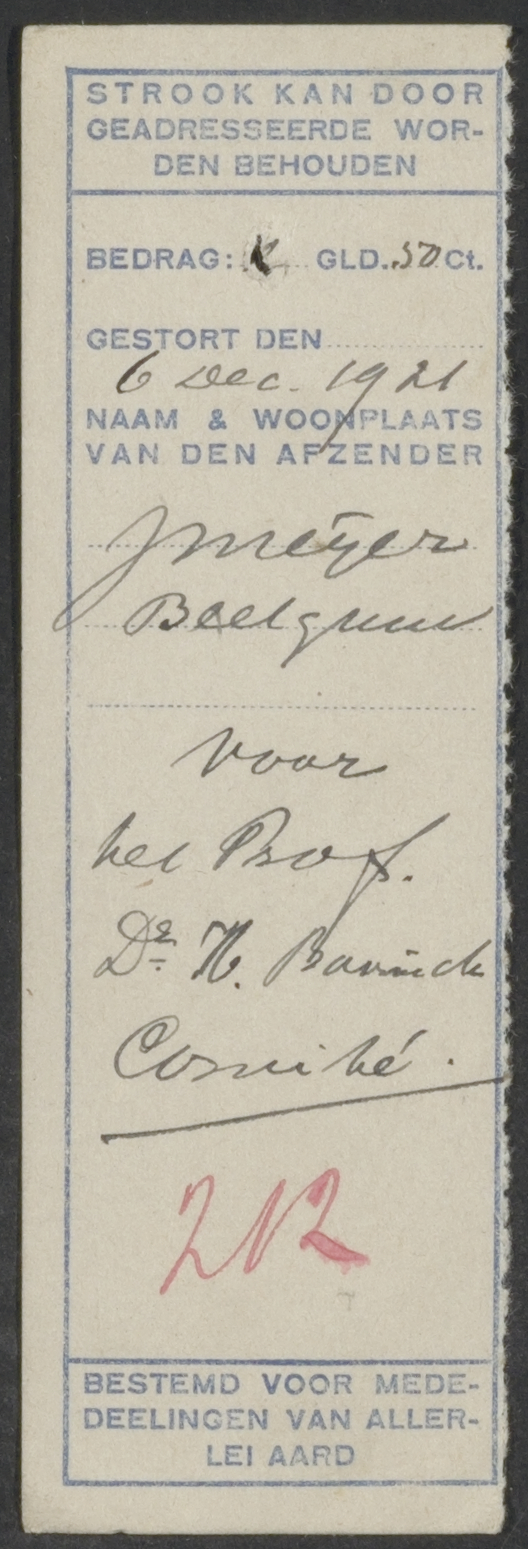 STROOK KAN DOOR
GEADRESSEERDE WOR-
DEN BEHOUDEN
BEDRAG: GLD. 50 Ct.
GESTORT DEN
6 Dec. 1921
NAAM & WOONPLAATS
VAN DEN AFZENDER
J Meijer
Beetgum
voor
het Prof.
Dr. H. Bavinck
Comité.
212
BESTEMD VOOR MEDE-
DEELINGEN VAN ALLER-
LEI AARD